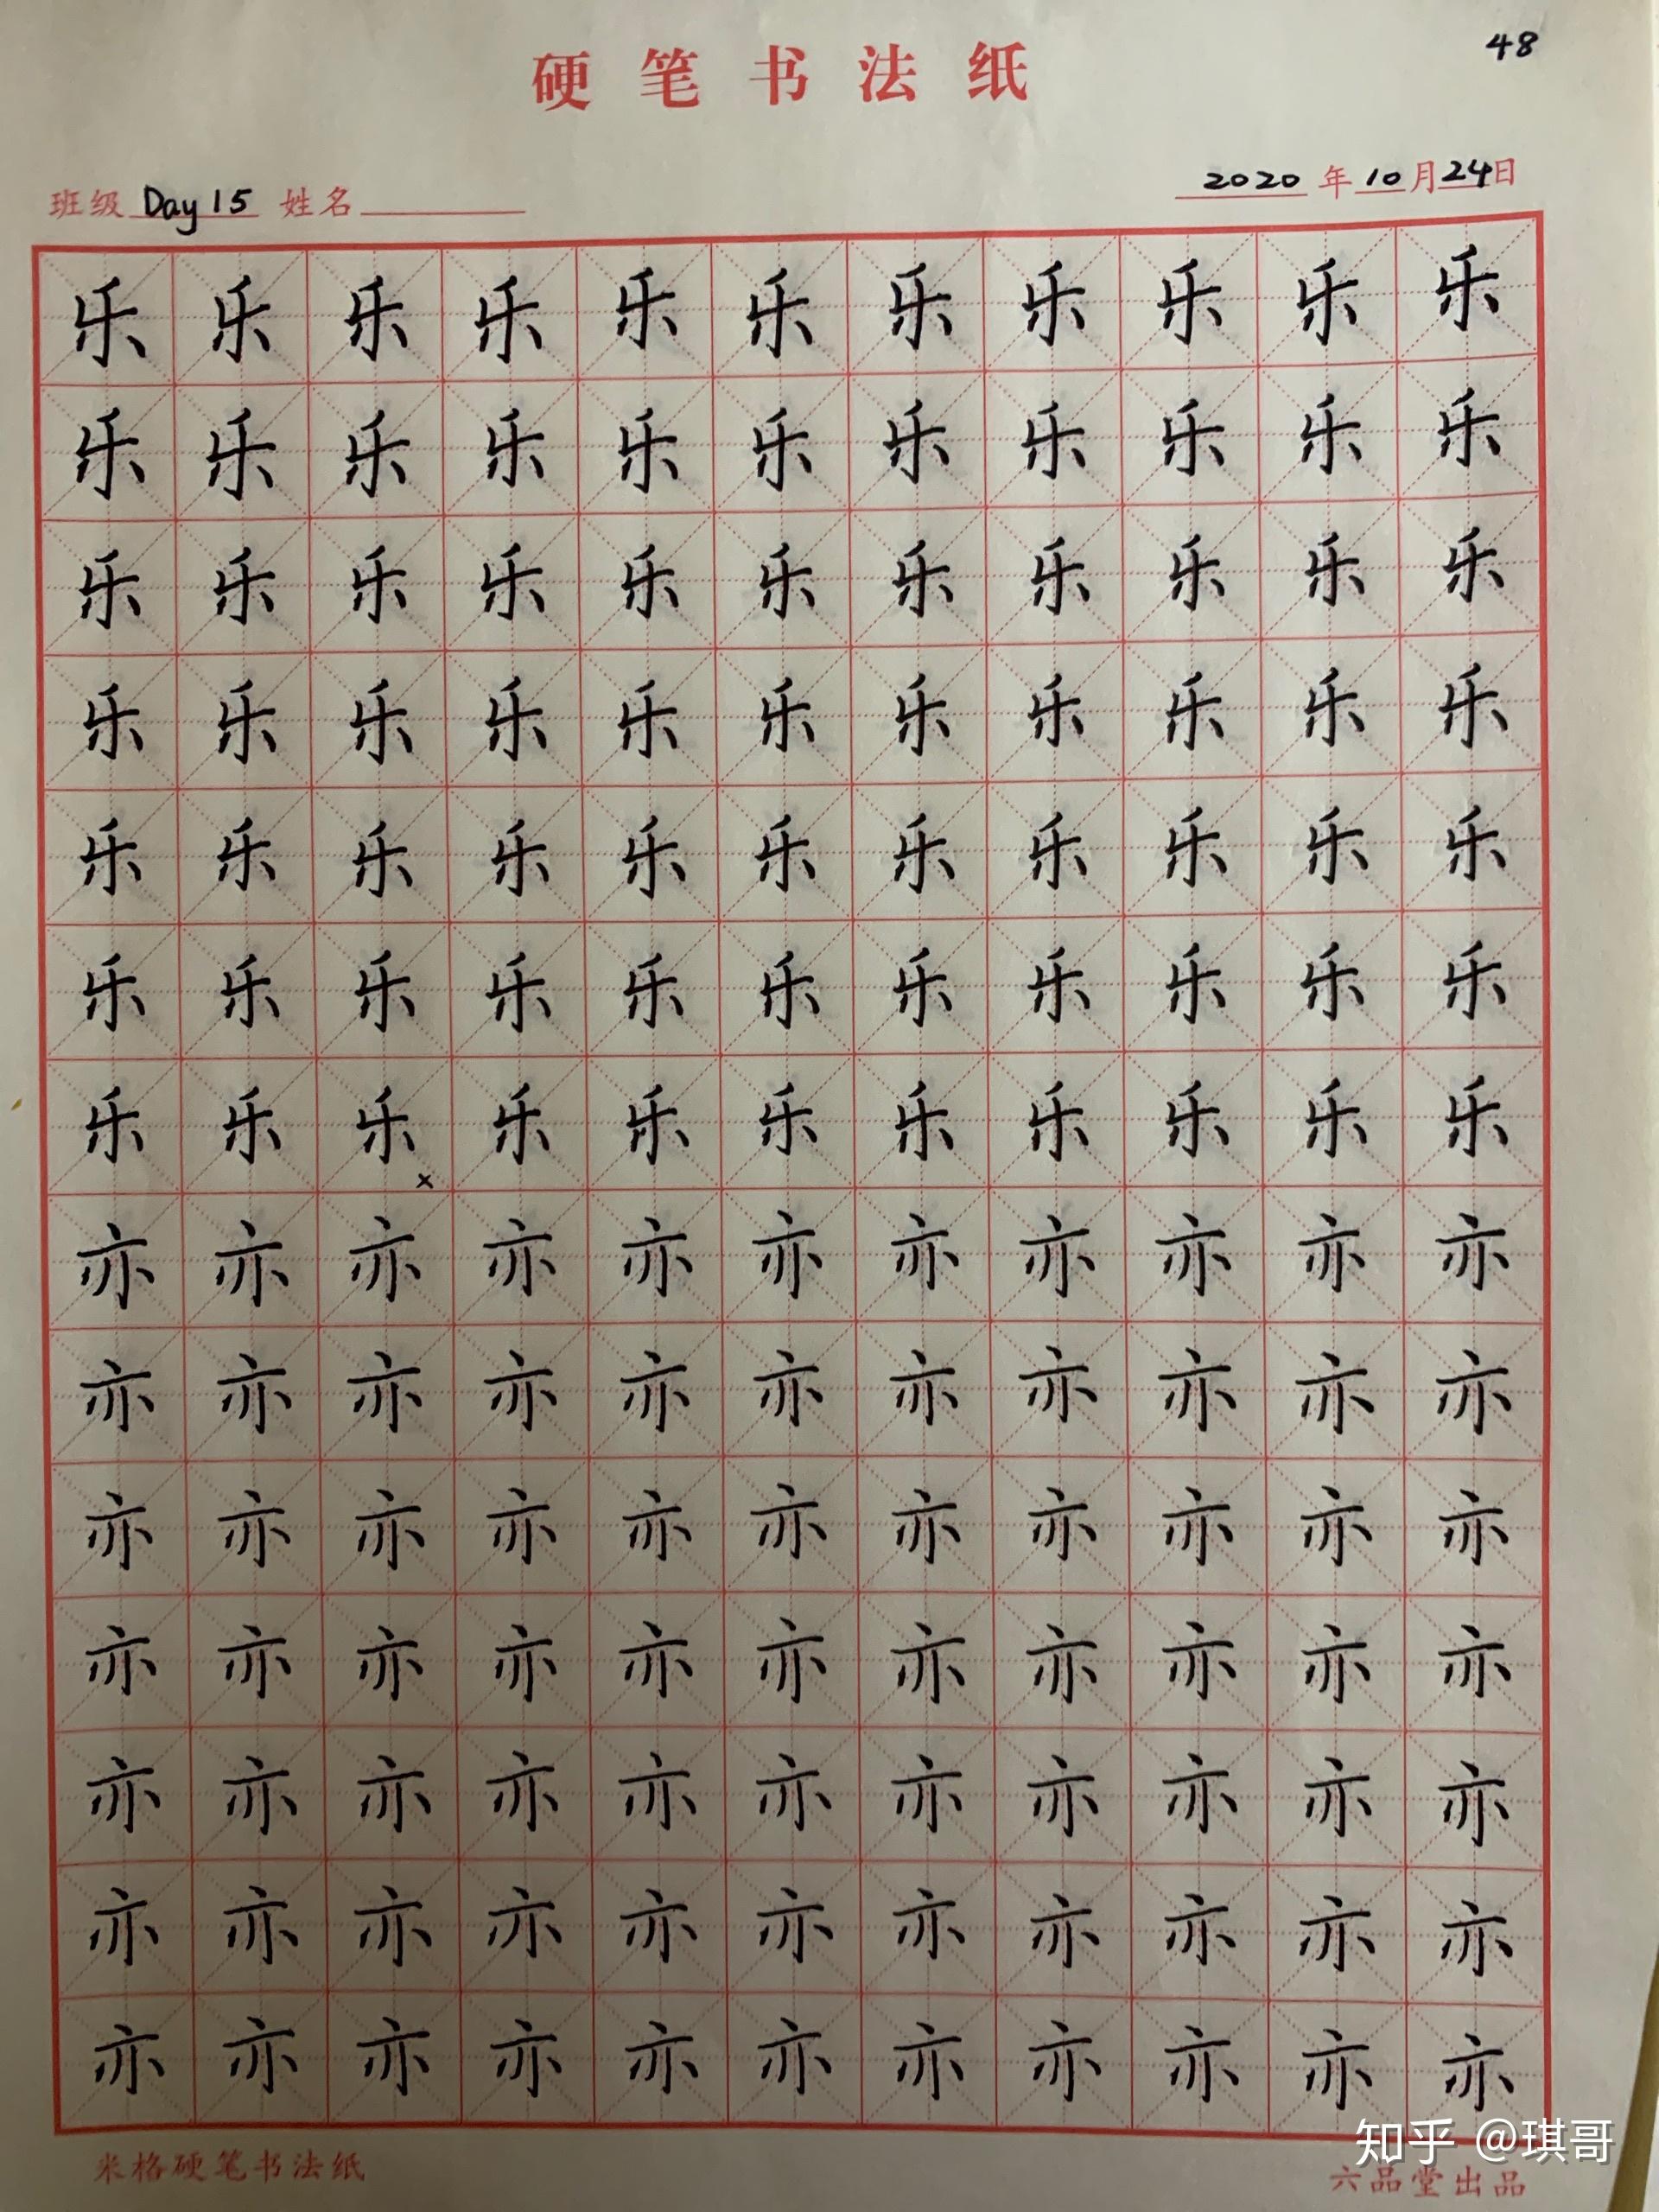 48
硬笔书法纸
班级 Day 15 姓名 2020 年 10 月 24 日
乐乐乐乐乐乐乐乐乐乐乐
乐乐乐乐乐乐乐乐乐乐乐
乐乐乐乐乐乐乐乐乐乐乐
乐乐乐乐乐乐乐乐乐乐乐
乐乐乐乐乐乐乐乐乐乐乐
乐乐乐乐乐乐乐乐乐乐乐
乐乐乐乐乐乐乐乐乐乐乐
x
亦亦亦亦亦亦亦亦亦亦亦
亦亦亦亦亦亦亦亦亦亦亦
亦亦亦亦亦亦亦亦亦亦亦
亦亦亦亦亦亦亦亦亦亦亦
亦亦亦亦亦亦亦亦亦亦亦
亦亦亦亦亦亦亦亦亦亦亦
亦亦亦亦亦亦亦亦亦亦亦
知乎 @琪哥
米格硬笔书法纸 六品堂出品